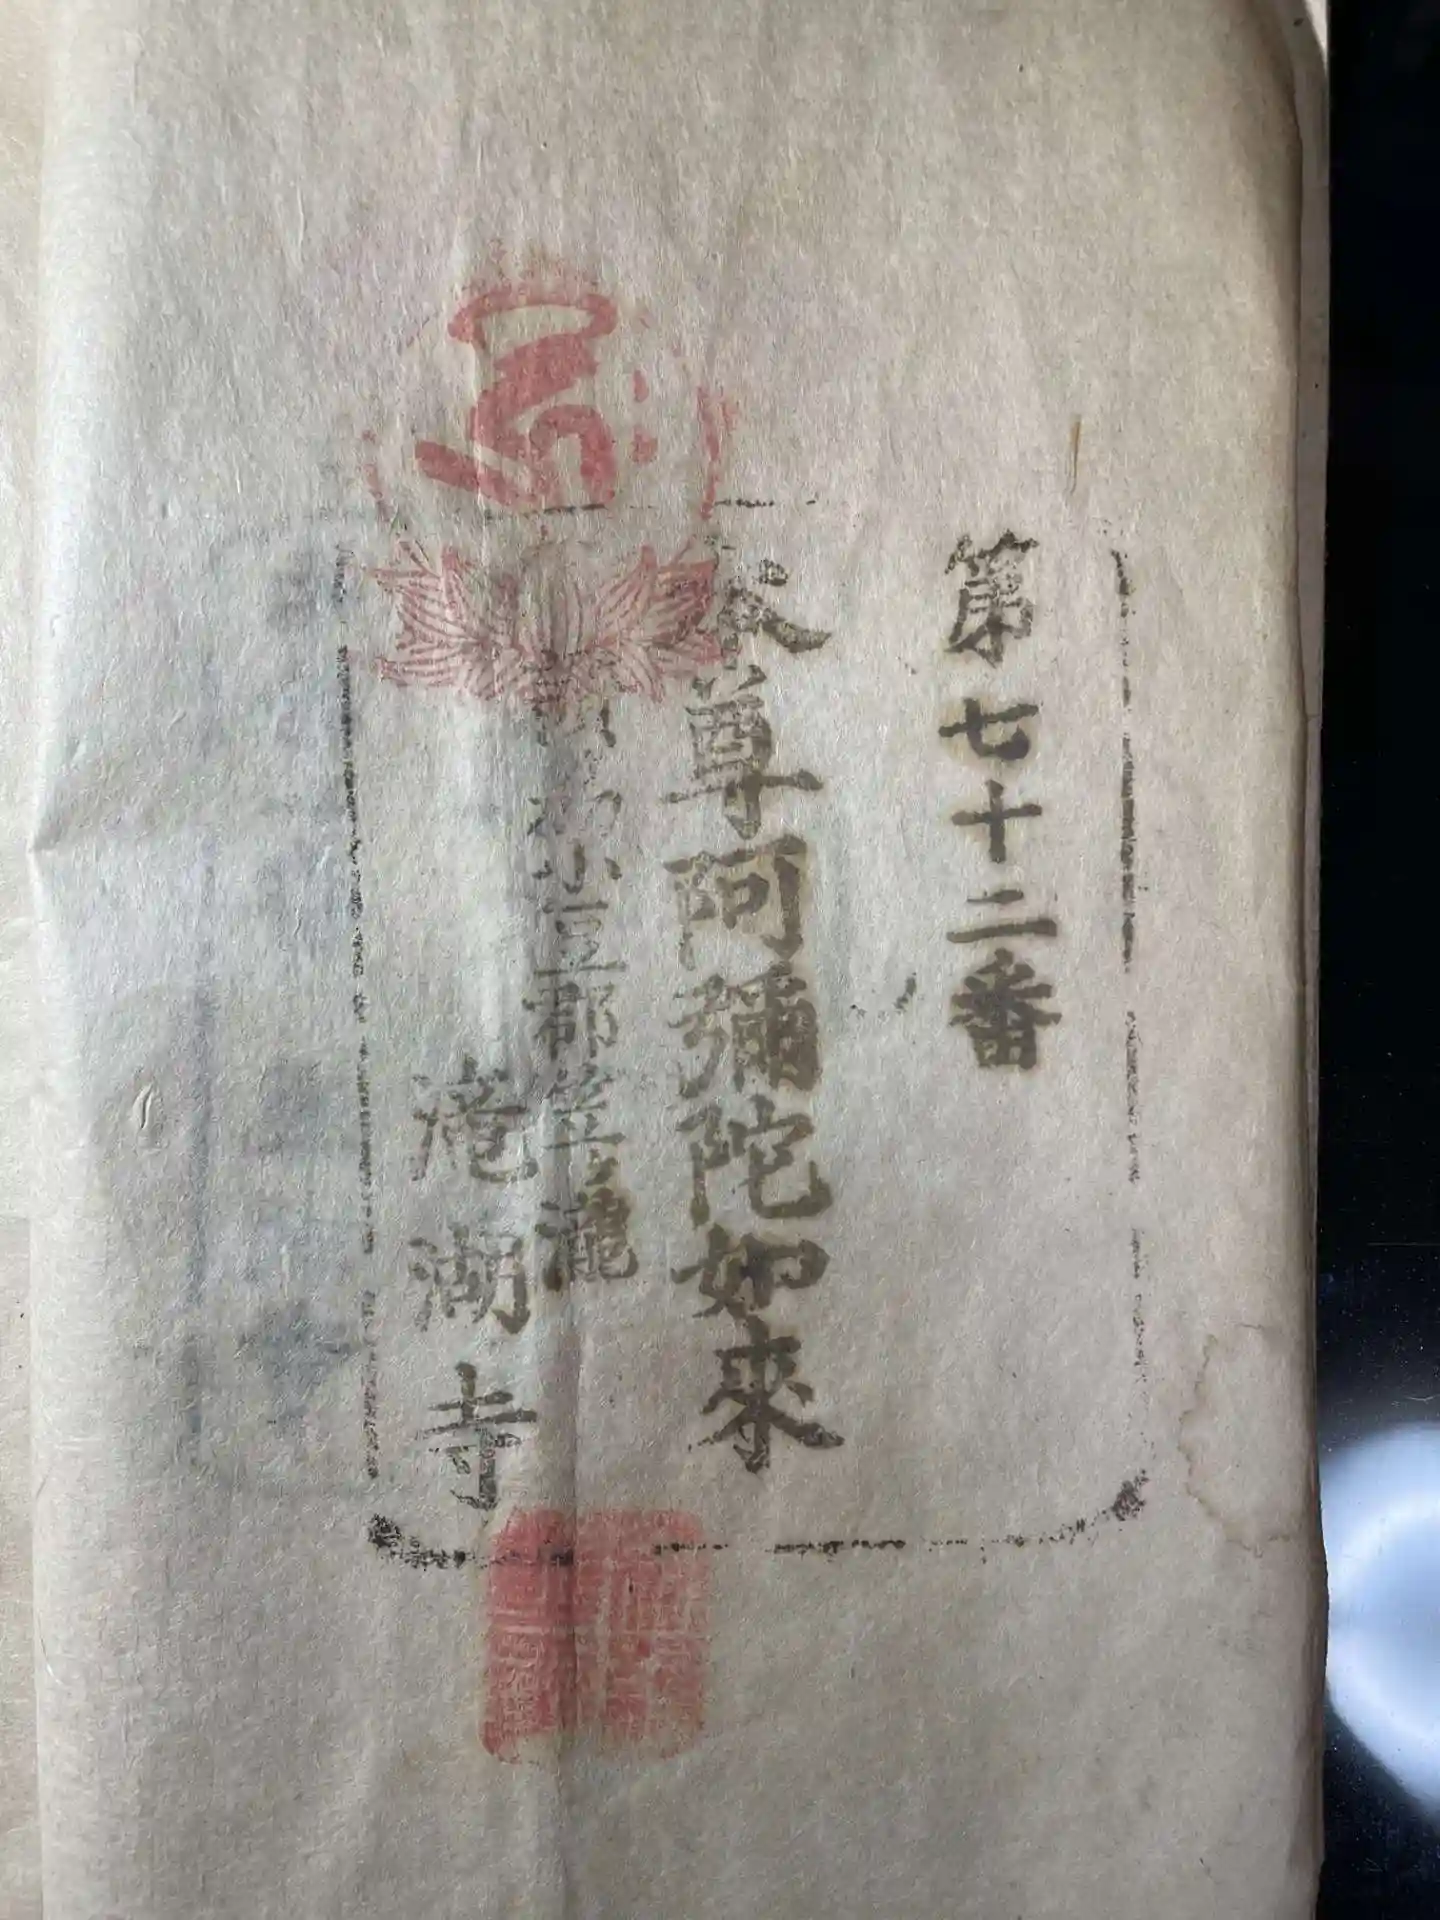 第七十二番
本尊阿彌陀如來
讃州小豆郡笠滝
滝湖寺